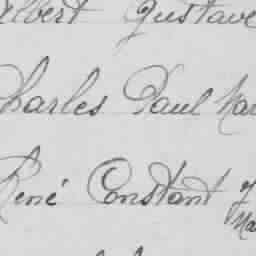 Albert Gustave
Charles Paul Mar
René Constant